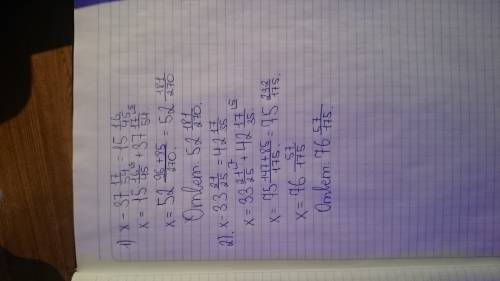 1) x - 37 17/54 = 15 16/45
x = 15 16/45 ⁶ + 37 17/54 ⁵
x = 52 96+85/270 = 52 181/270
Ответ: 52 181/270.
2). x - 33 21/25 = 42 17/35
x = 33 21/25 ⁷ + 42 17/35 ⁵
x = 75 147+85/175 = 75 232/175.
x = 76 57/175
Ответ: 76 57/175.